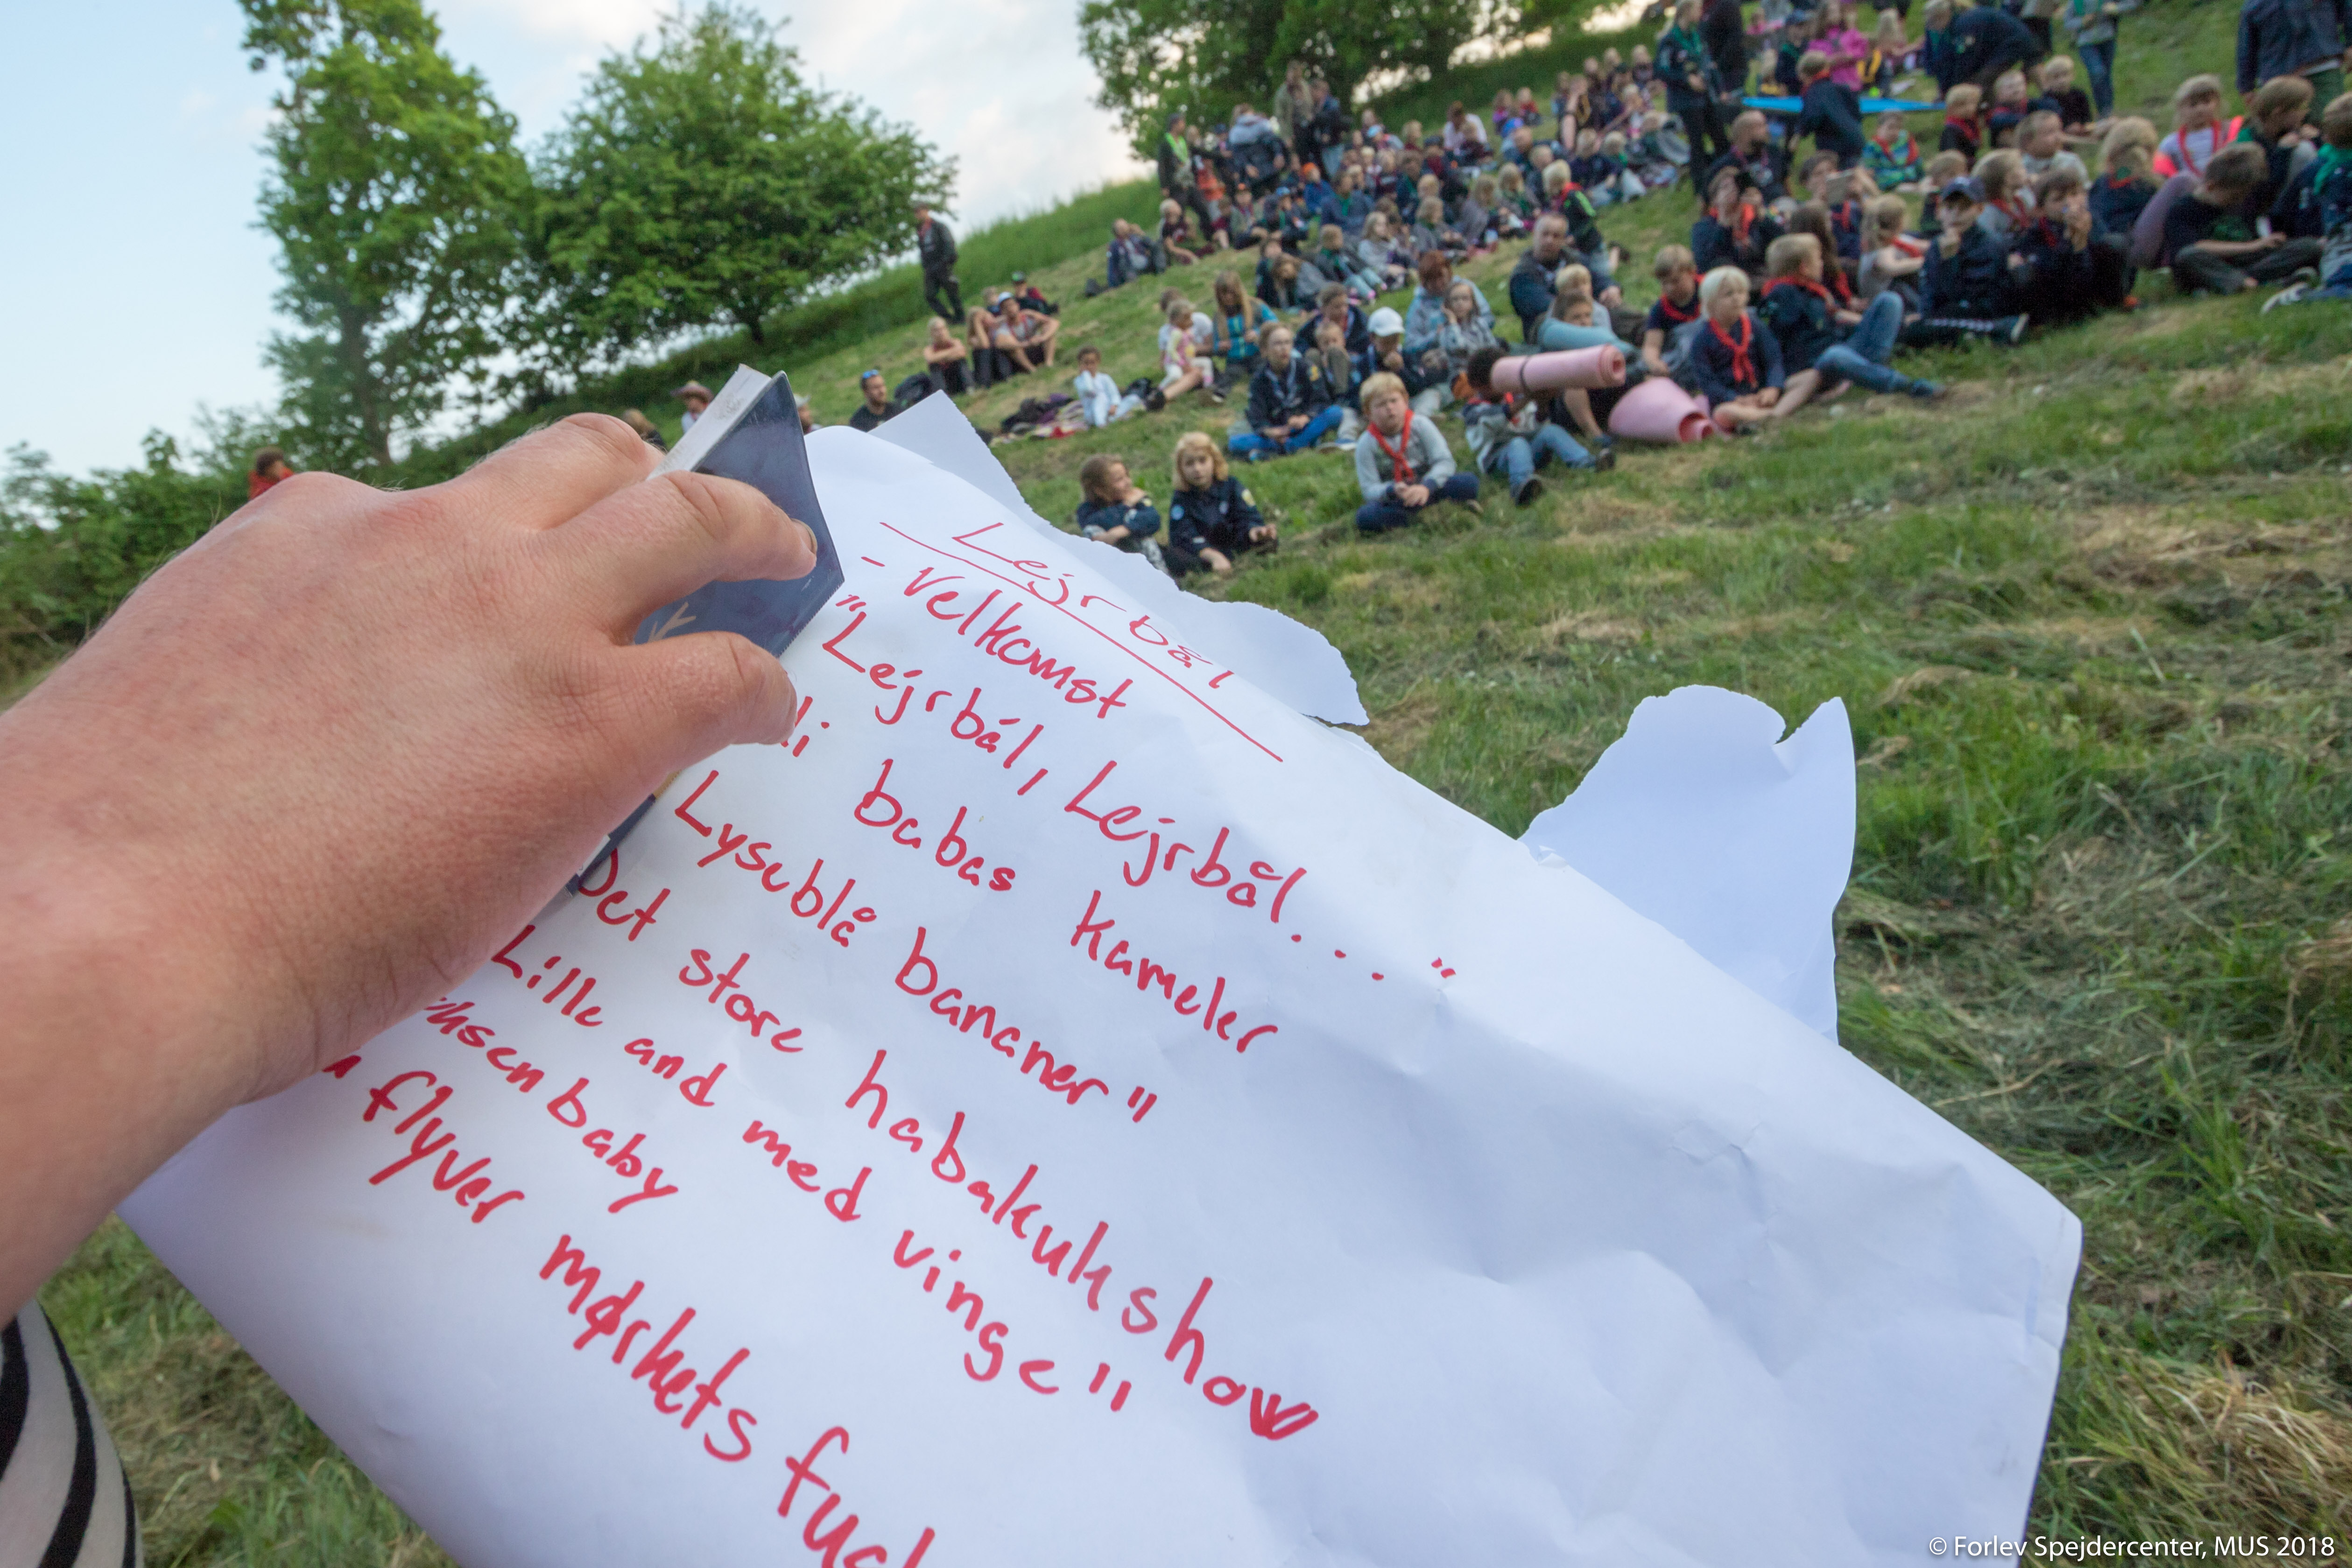 Lejrbål
- Velkomst
"Lejrbål, Lejrbål..."
babas kameler
Lyseblå bananer"
Det store habakukshow
Lille and med vinge"
baby
flyver mørkets
© Forlev Spejdercenter, MUS 2018